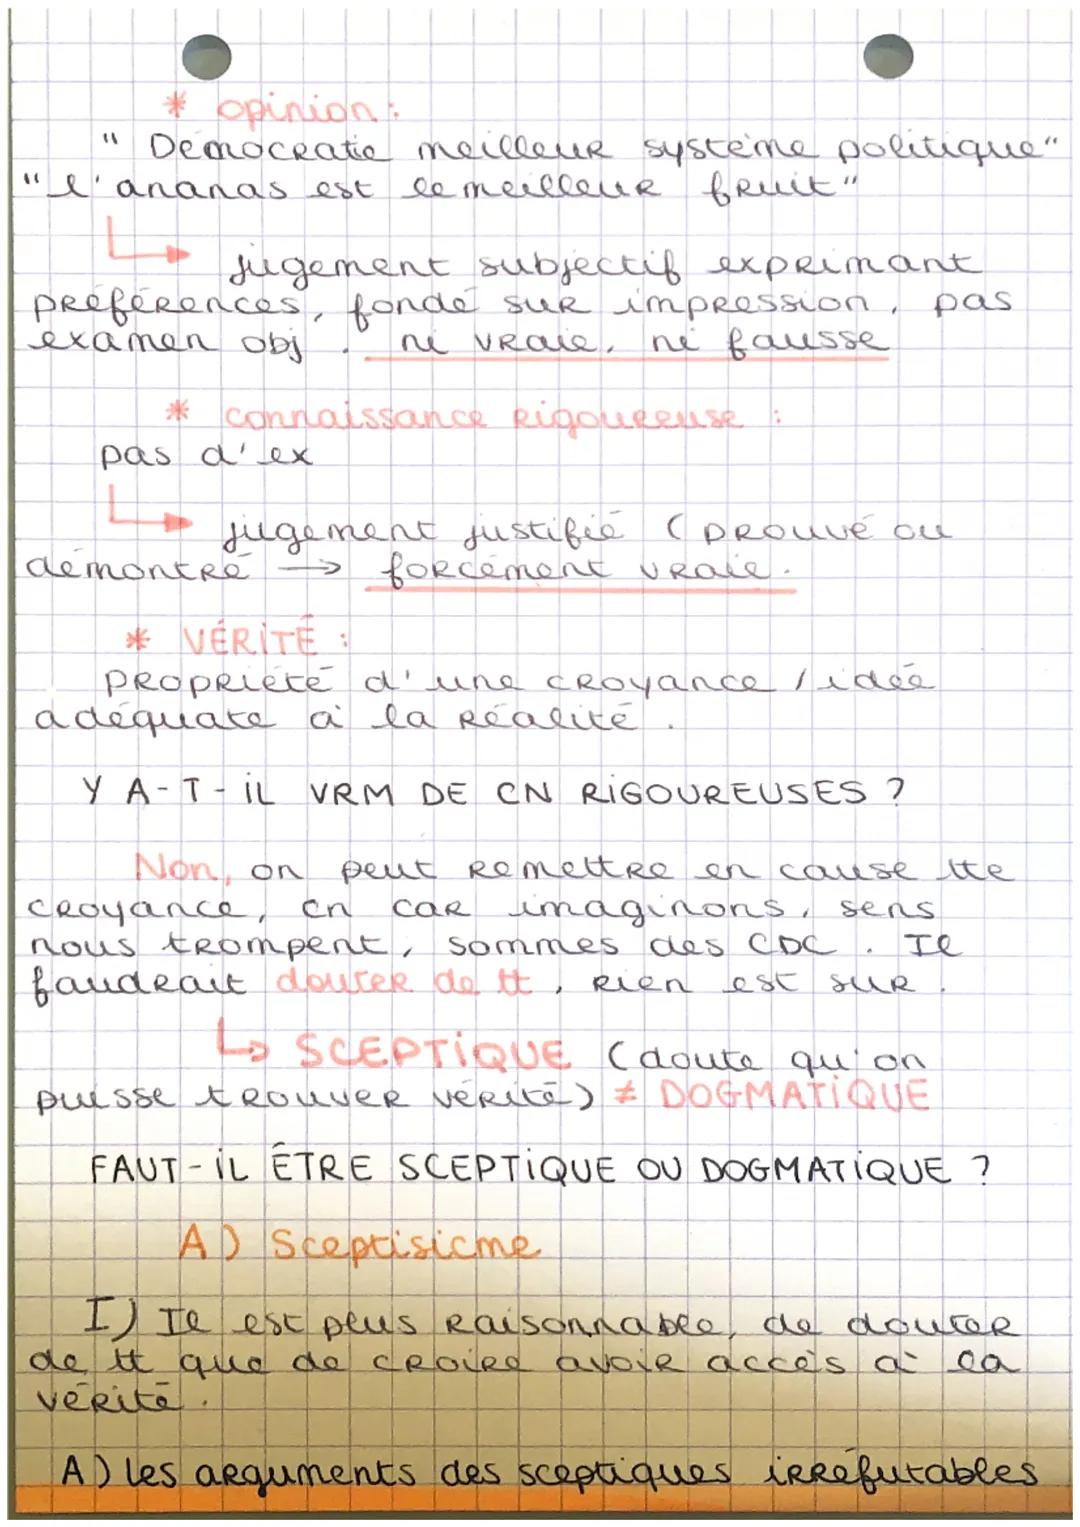 * opinion :
" Démocratie meilleur système politique"
"l'ananas est le meilleur fruit"
jugement subjectif exprimant
préférences, fondé sur impression, pas
examen obj . ni vraie, ni fausse
* connaissance rigoureuse :
pas d'ex
jugement justifié (prouvé ou
démontré → forcément vraie.
* VÉRITÉ :
propriété d'une croyance / idée
adéquate à la réalité .
Y A-T-IL VRM DE CN RIGOUREUSES ?
Non, on peut remettre en cause tte
croyance, cn car imaginons, sens
nous trompent, sommes des CDC . Il
faudrait douter de tt, rien est sur .
↳ SCEPTIQUE (doute qu'on
puisse trouver vérité) ≠ DOGMATIQUE
FAUT-IL ÊTRE SCEPTIQUE OU DOGMATIQUE ?
A) Sceptisicme
I) Il est plus raisonnable, de douter
de tt que de croire avoir accès à la
vérité .
A) les arguments des sceptiques irréfutables